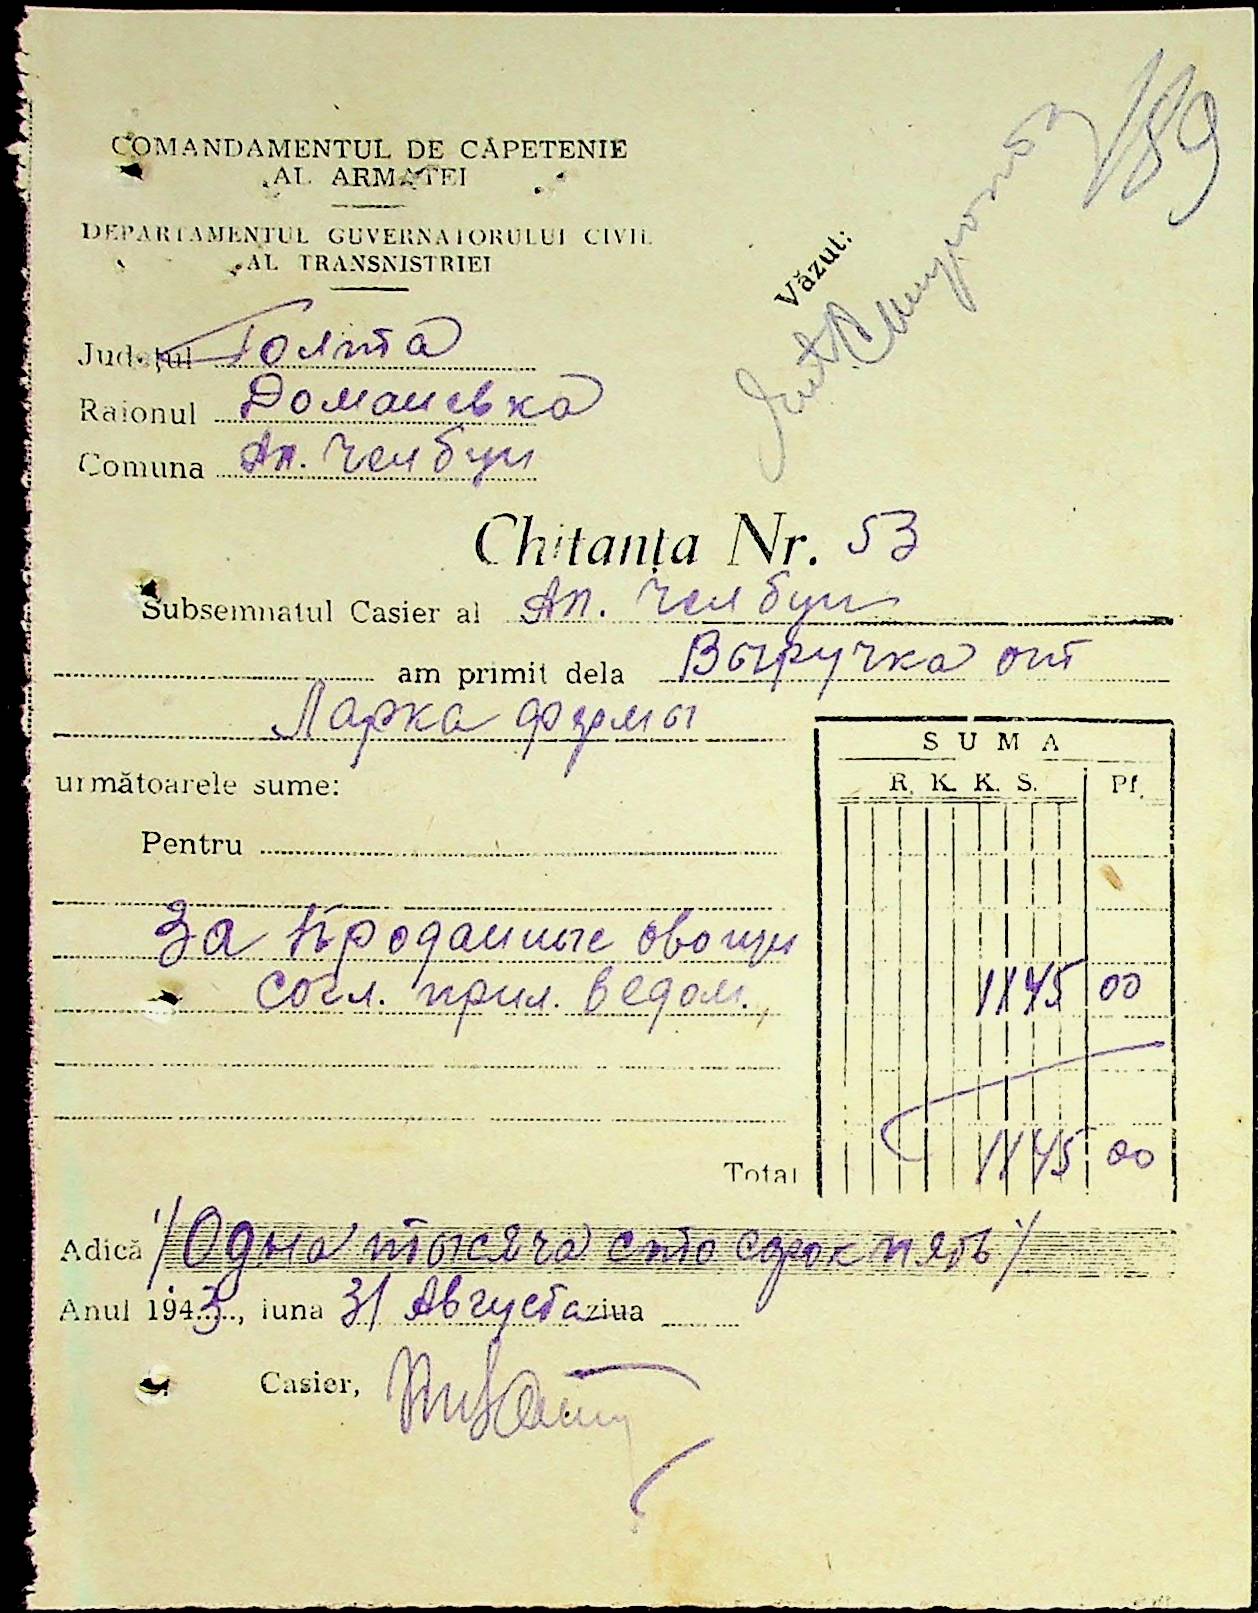 189
COMANDAMENTUL DE CĂPETENIE
AL ARMATEI
DEPARTAMENTUL GUVERNATORULUI CIVIL
AL TRANSNISTRIEI
Văzut:
Județul Голта
Raionul Доманевка
Comuna Ап. Челбуи
Chitanța Nr. 53
Subsemnatul Casier al Ап. Челбуи
am primit dela Выручка от
Ларка фермы
următoarele sume:
SUMA
R. K. K. S. Pf.
Pentru
За проданные овощи
согл. прил. ведом. 1145 00
Total 1145 00
Adică /Одна тысяча сто сорок пять/
Anul 1943, luna 31 Августа ziua
Casier,